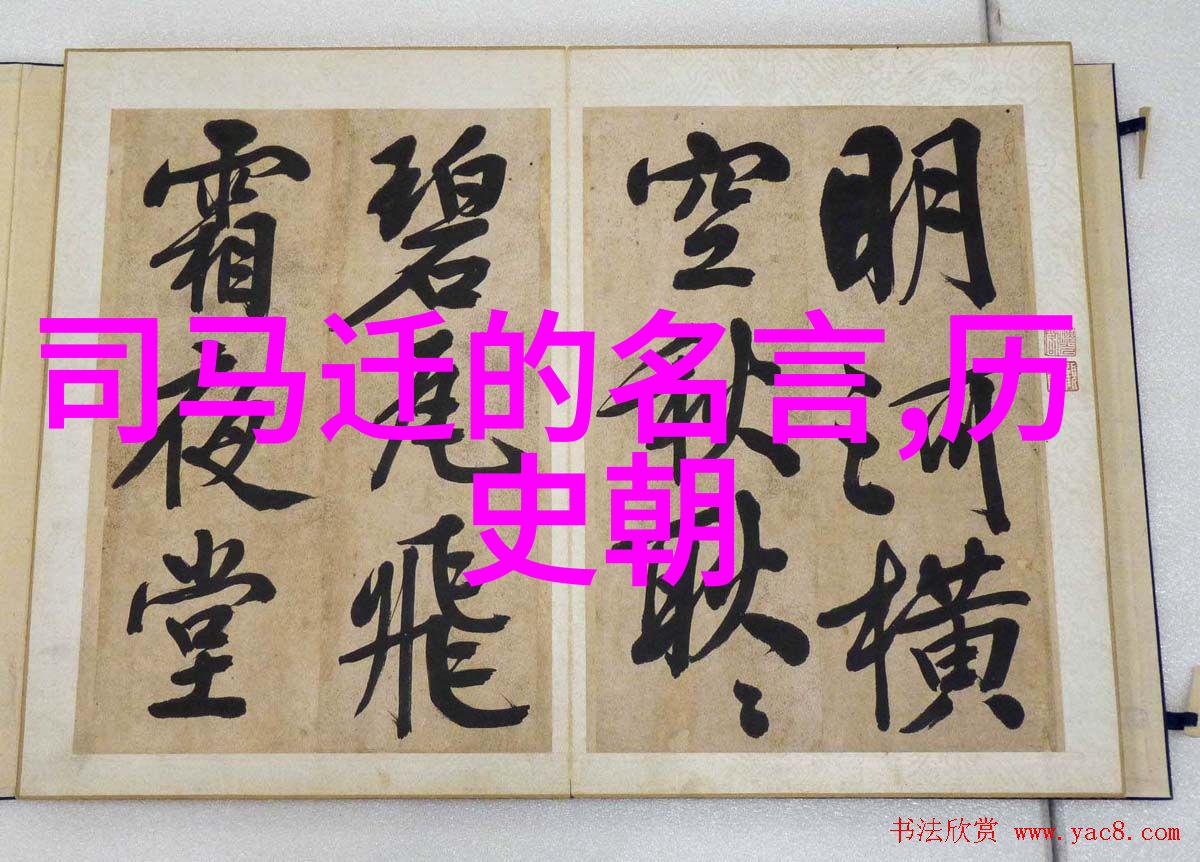 司马迁的名言,历
史朝
明河橫
空
碧瓦飛
霜夜堂
书法欣赏 www.yac8.com